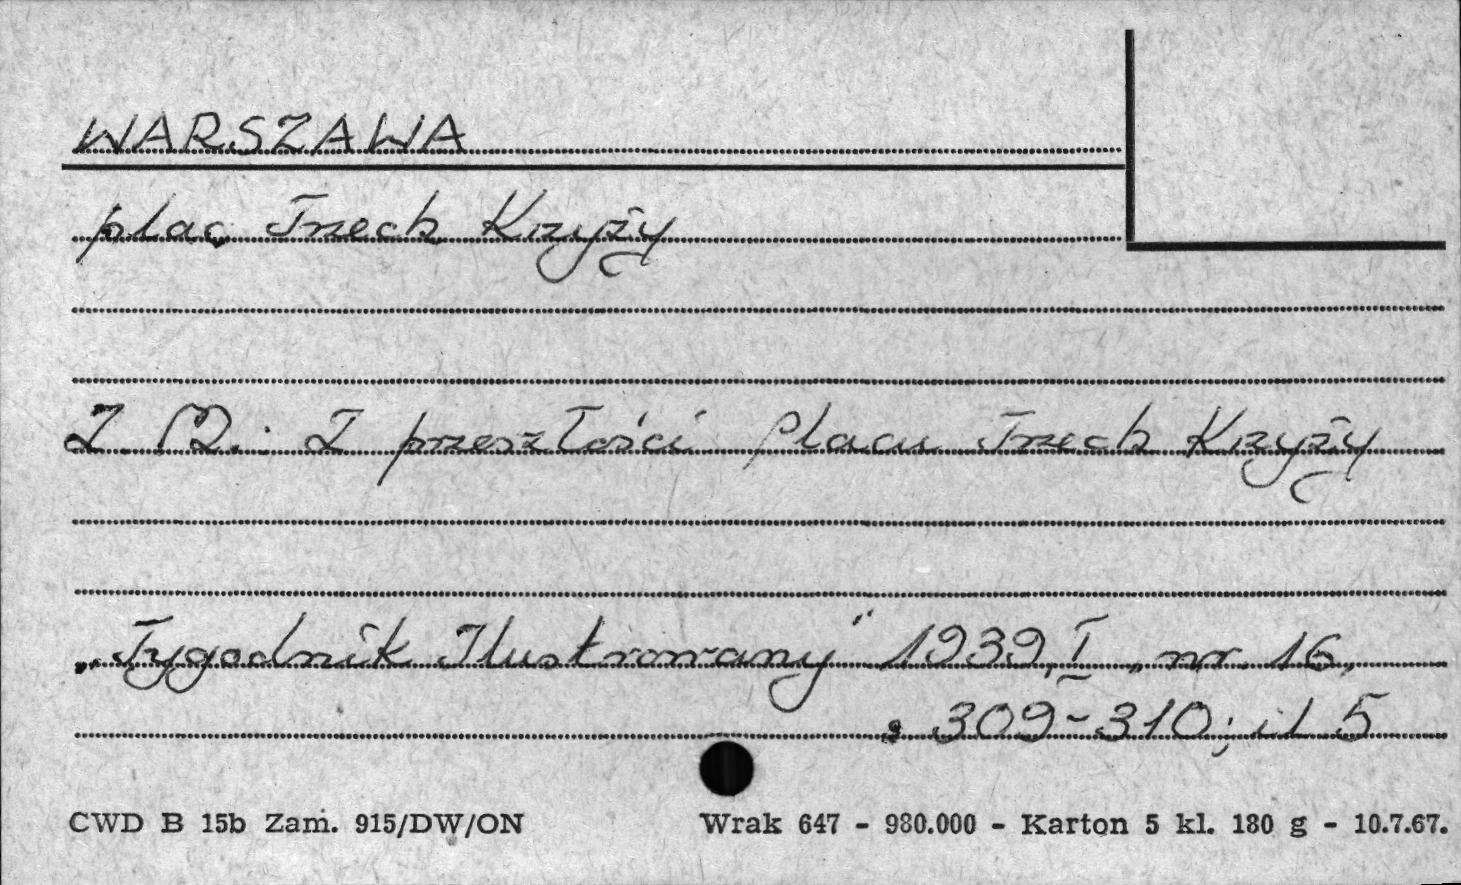 WARSZAWA
plac Trzech Krzyży
Z M.: Z przeszłości Placu Trzech Krzyży
„Tygodnik Ilustrowany" 1939, I, nr 16,
s 309-310; il 5
CWD B 15b Zam. 915/DW/ON Wrak 647 - 980.000 - Karton 5 kl. 180 g - 10.7.67.